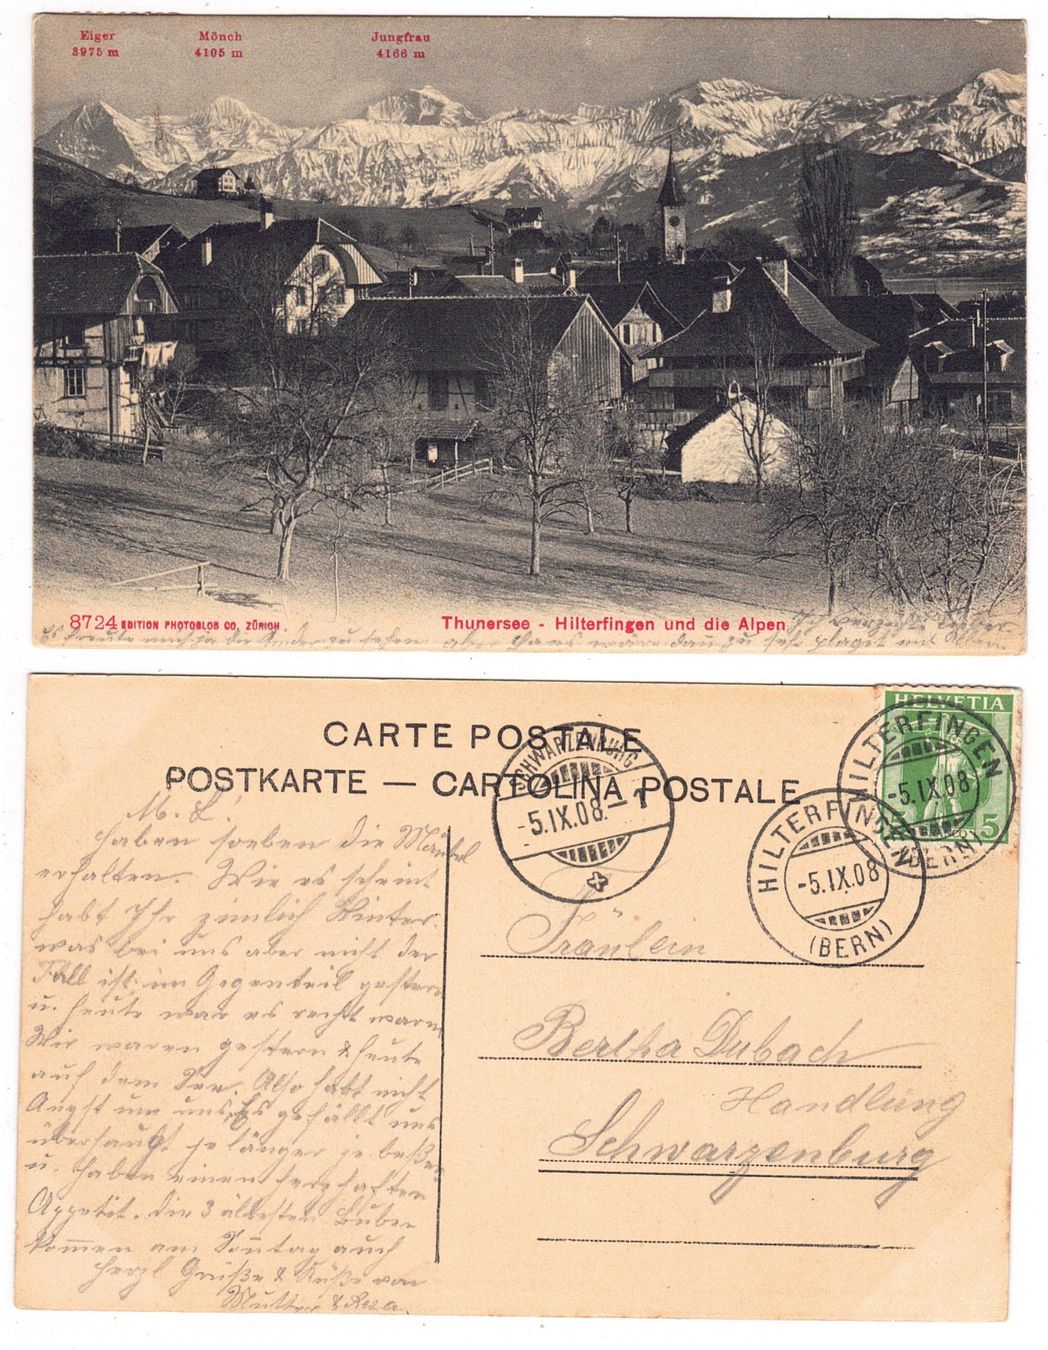 Eiger
3975 m
Mönch
4105 m
Jungfrau
4166 m
8724 EDITION PHOTOGLOB CO, ZÜRICH
Thunersee - Hilterfingen und die Alpen
Es freute mich ja die Kinder zu sehen aber Hans wäre dann zu sehr plaget mit
CARTE POSTALE
POSTKARTE — CARTOLINA POSTALE
SCHWARZENBURG
-5.IX.08.-1
HELVETIA
5
HILTERFINGEN
-5.IX.08
(BERN)
HILTERFINGEN
-5.IX.08
(BERN)
M. L!
Haben soeben die Mäntel
erhalten. Wie es scheint
habt Ihr zimlich Winter.
was bei uns aber nicht der
Fall ist; im Gegenteil gestern
u. heute war es recht warm
Wir waren gestern & heute
auf dem See. Also habt nicht
Angst um uns. Es gefällt uns
überhaupt je länger je besser
u. haben einen herzhaften
Appetit. Die 3 ältesten Buben
kommen am Sonntag auch
Herzl Grüße & Küße von
Mutter & Rosa.
Fräulein
Bertha Dubach
Handlung
Schwarzenburg